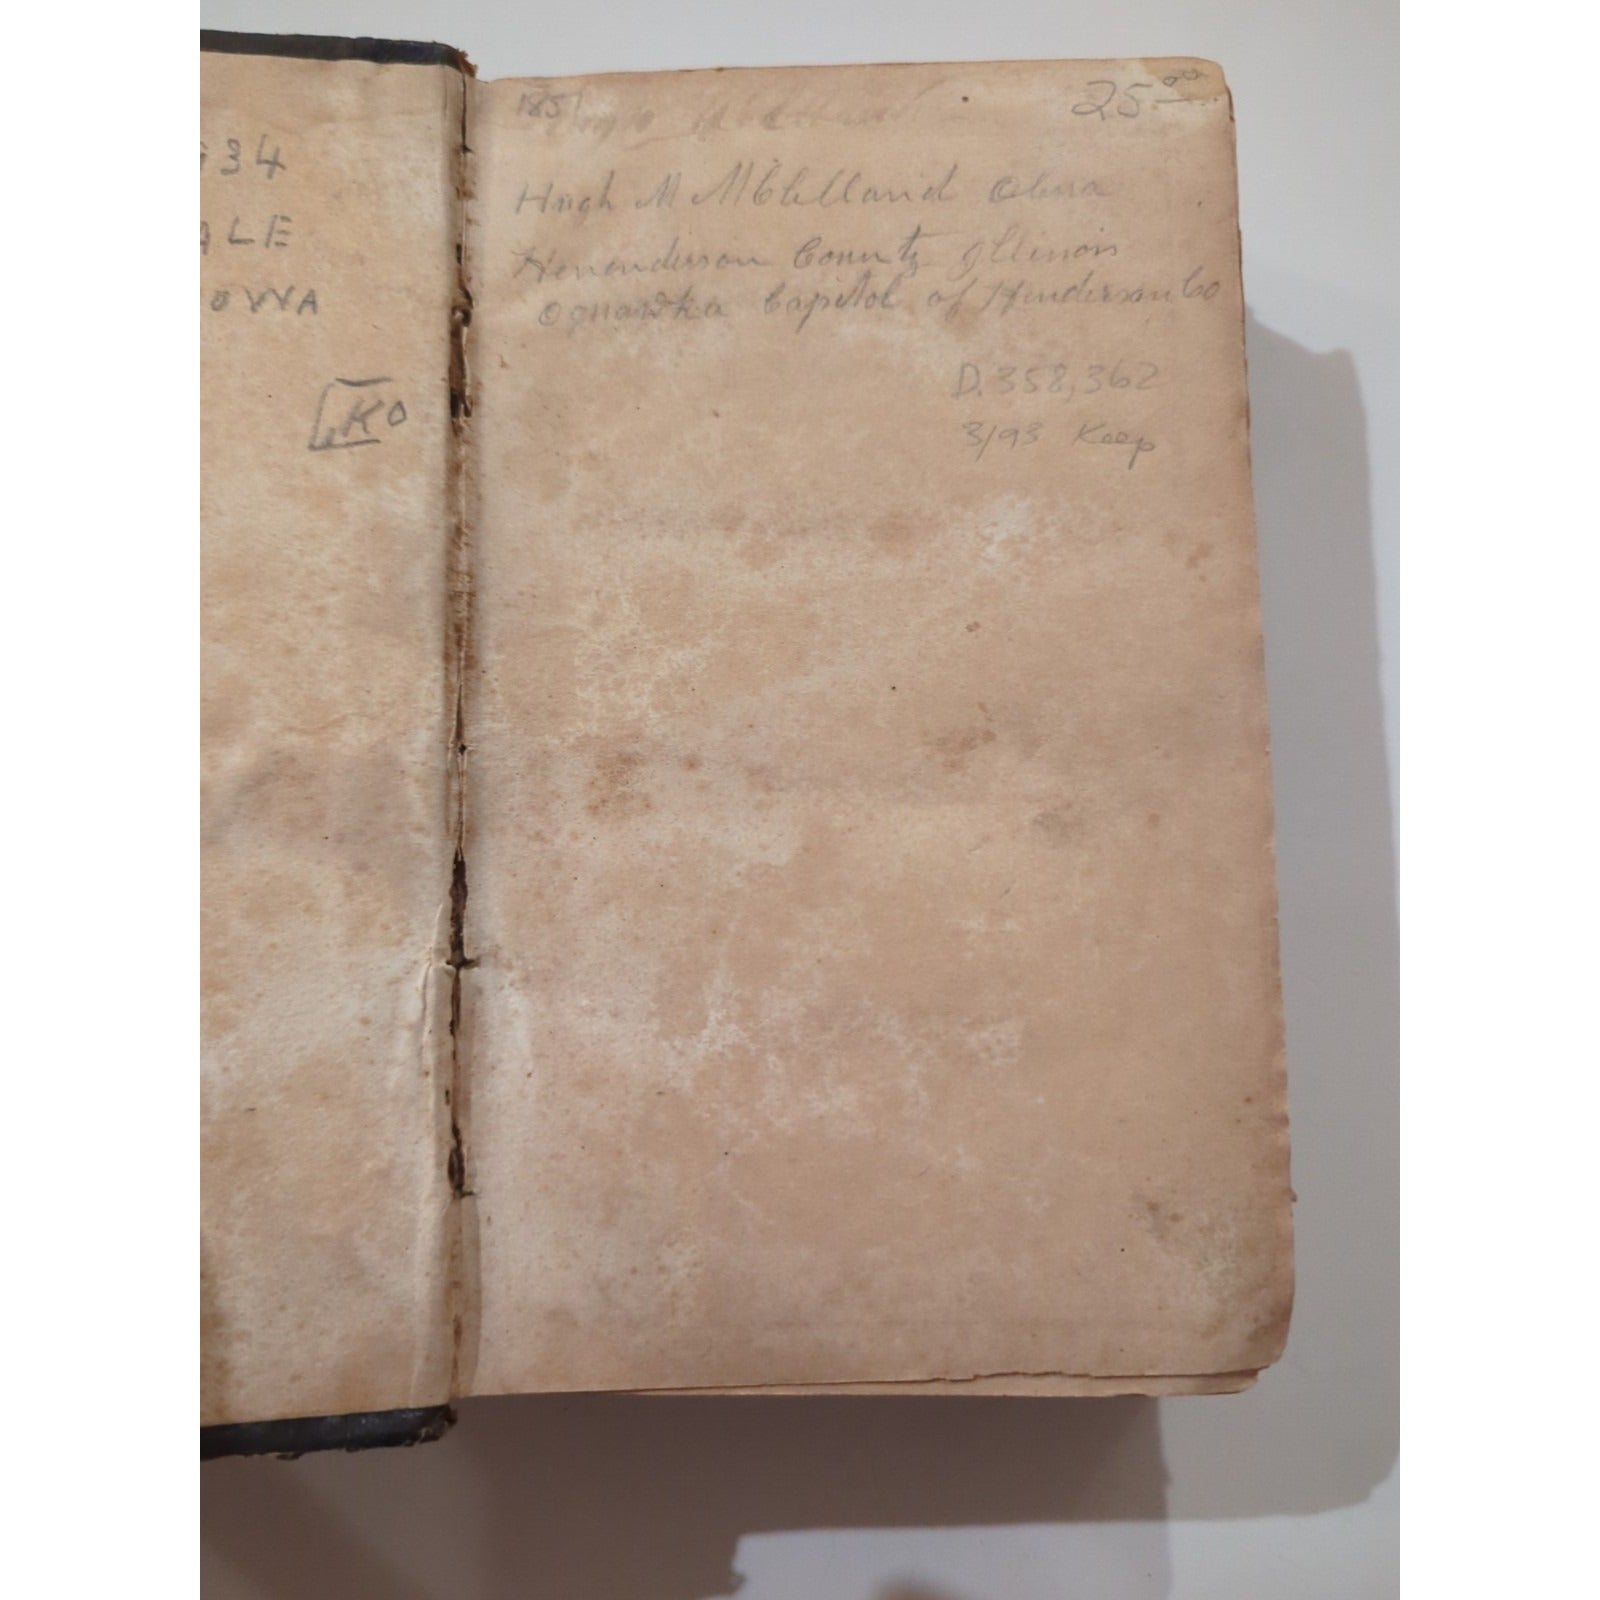 34
ALE
OWA
KO
185
25.00
Hugh M McClelland Olena
Henenderson County Illinois
Oquawka Capitol of Henderson Co
D. 358, 362
3/93 Keep